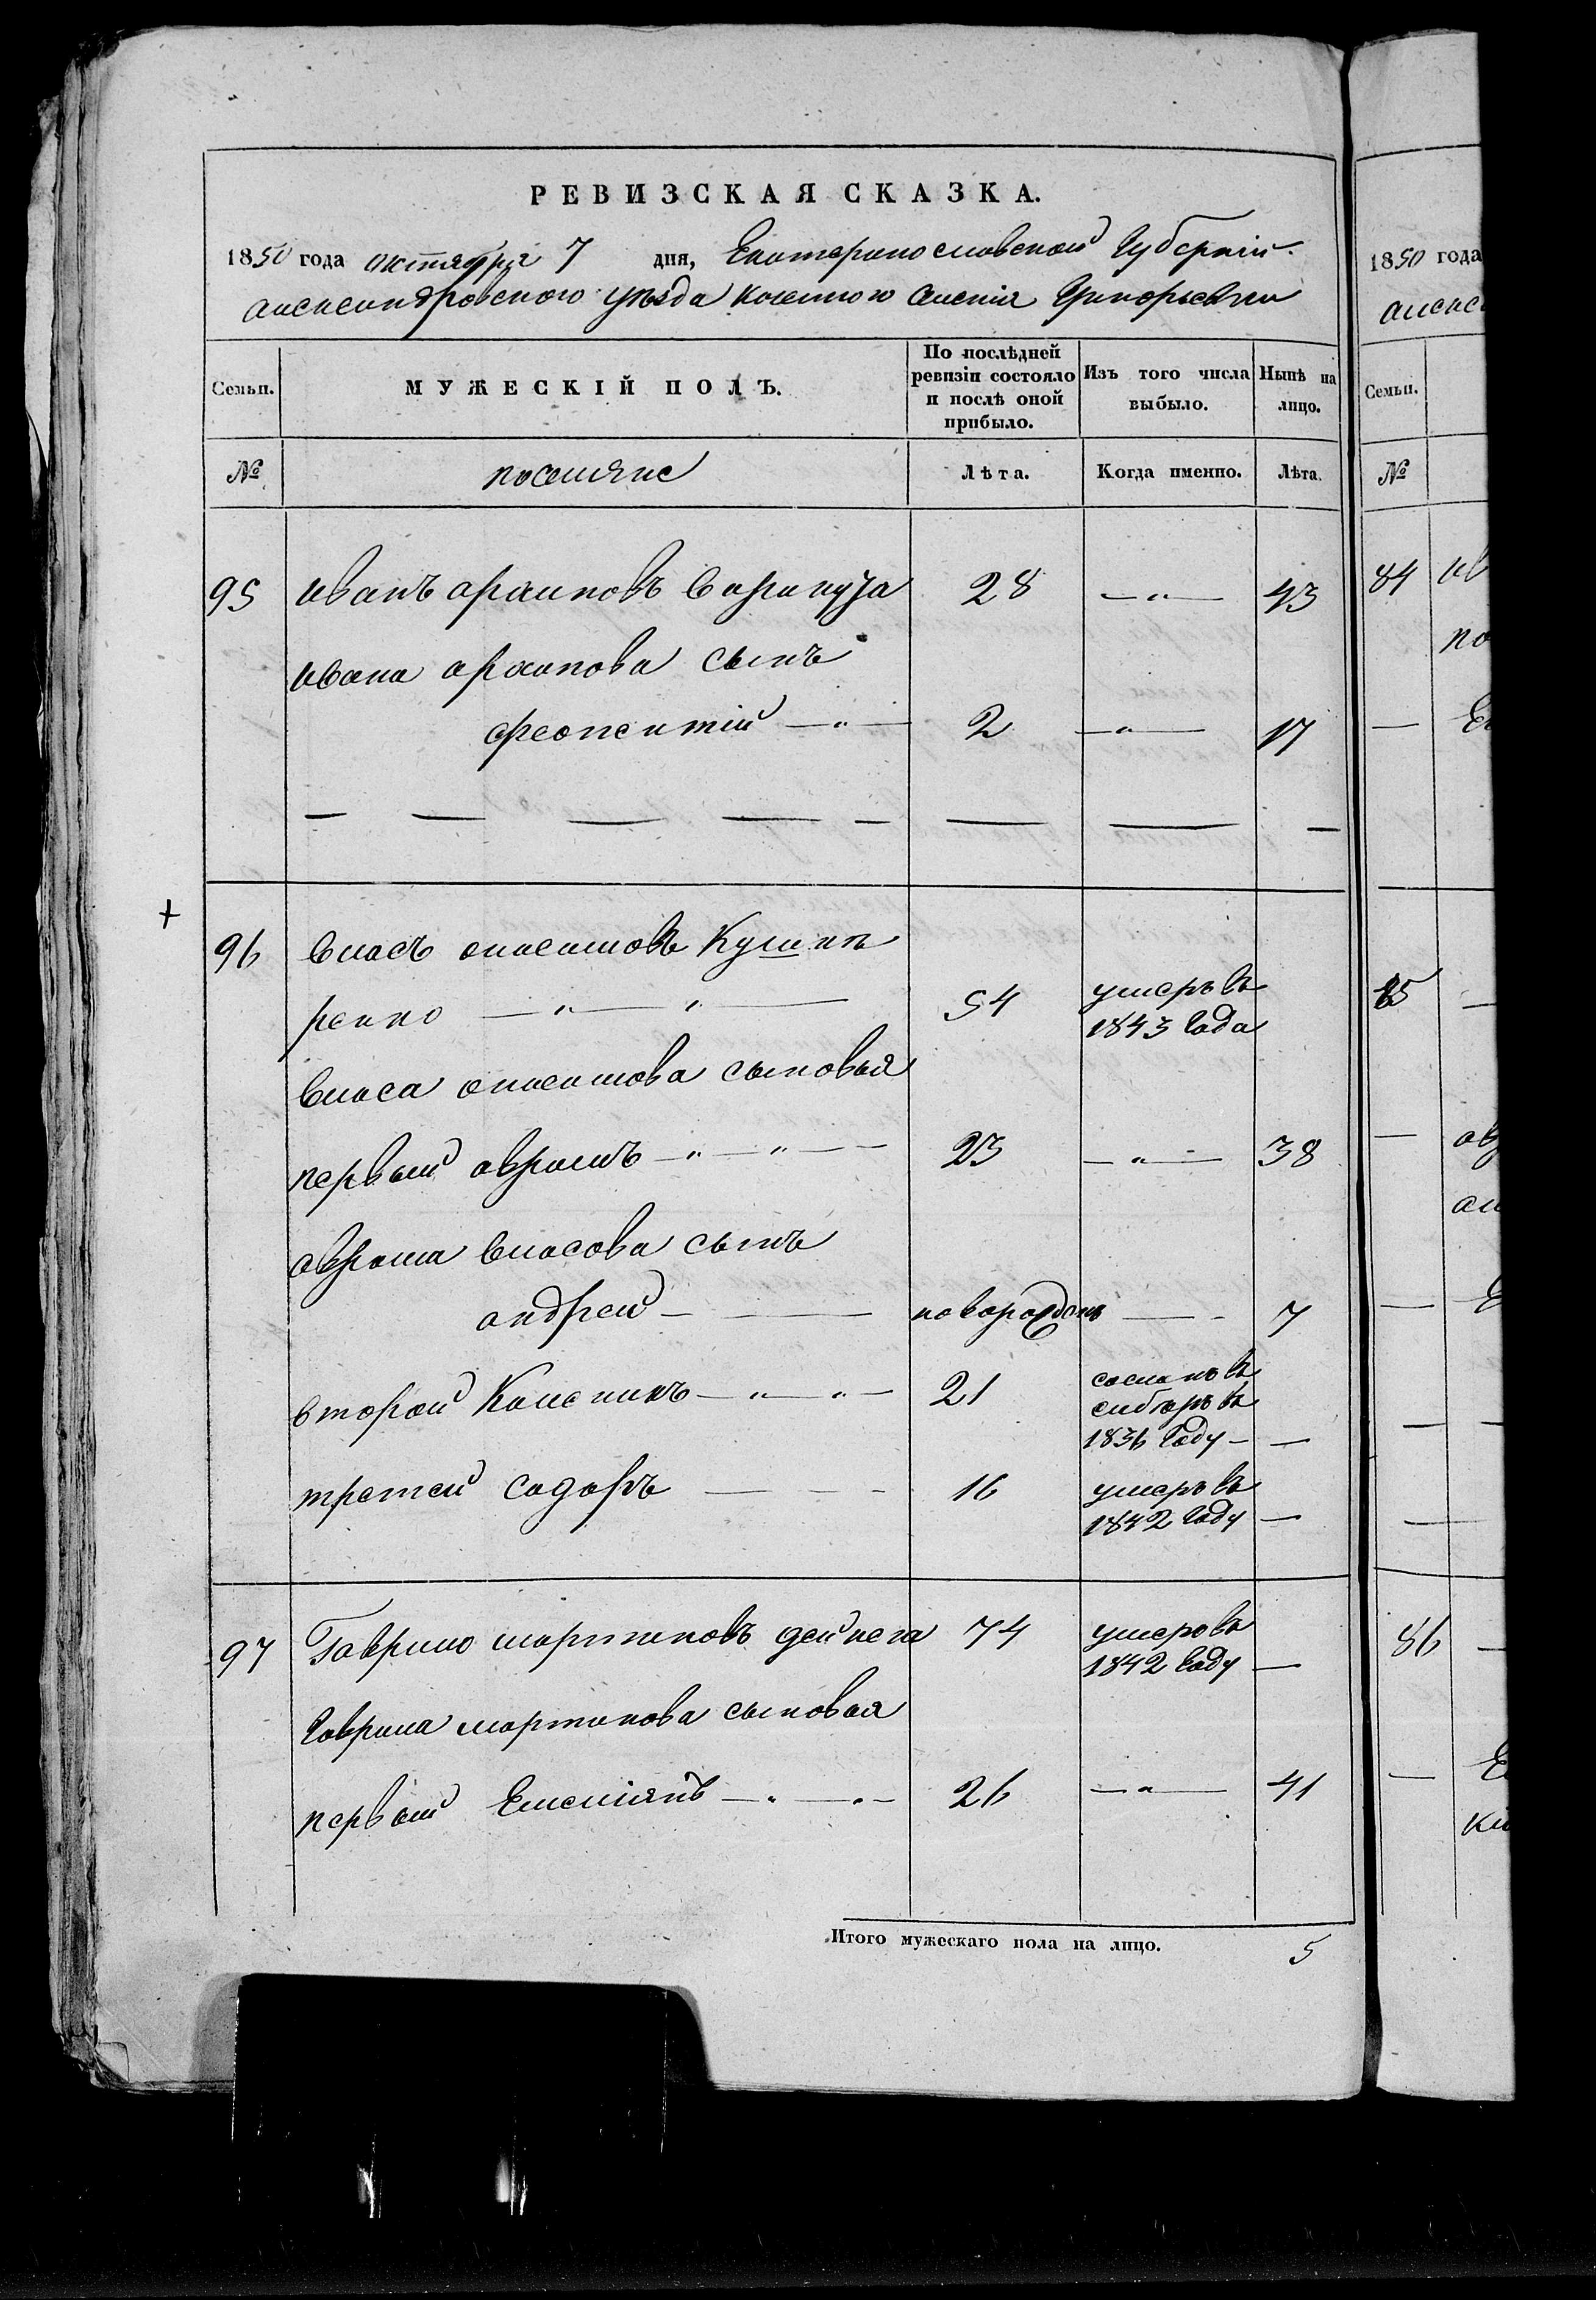 РЕВИЗСКАЯ СКАЗКА.
1850 года октября 7 дня, Екатеринославской Губернiи.
александровского уѣзда казенного селенiя Григорьевки
Семьи.
МУЖЕСКIЙ ПОЛЪ.
По послѣдней ревизiи состояло и послѣ оной прибыло.
Изъ того числа выбыло.
Нынѣ на лицо.
№
поселяне
Лѣта.
Когда именно.
Лѣта.
95 иванъ архиповъ 28 —"— 43
ивана архипова сынъ
феопентiй —"— 2 —"— 17
96 власъ
ренко —"—"— 54 умеръ въ 1843 года
власа сыновья
первый аврамъ —"—"— 23 —"— 38
аврама власова сынъ
андрей — — новорожденъ — - 7
второй Каленикъ —"—"— 21 сосланъ въ сибирь въ 1836 году — —
третей сидоръ — — - 16 умеръ въ 1842 году —
97 Гаврило мартиновъ дейнега 74 умеръ въ 1842 году —
гаврила мартинова сыновья
первый Емелiянъ —"—"— 26 —"— 41
Итого мужескаго пола на лицо. 5
1850 года
Семьи.
№
84 ив
85
86